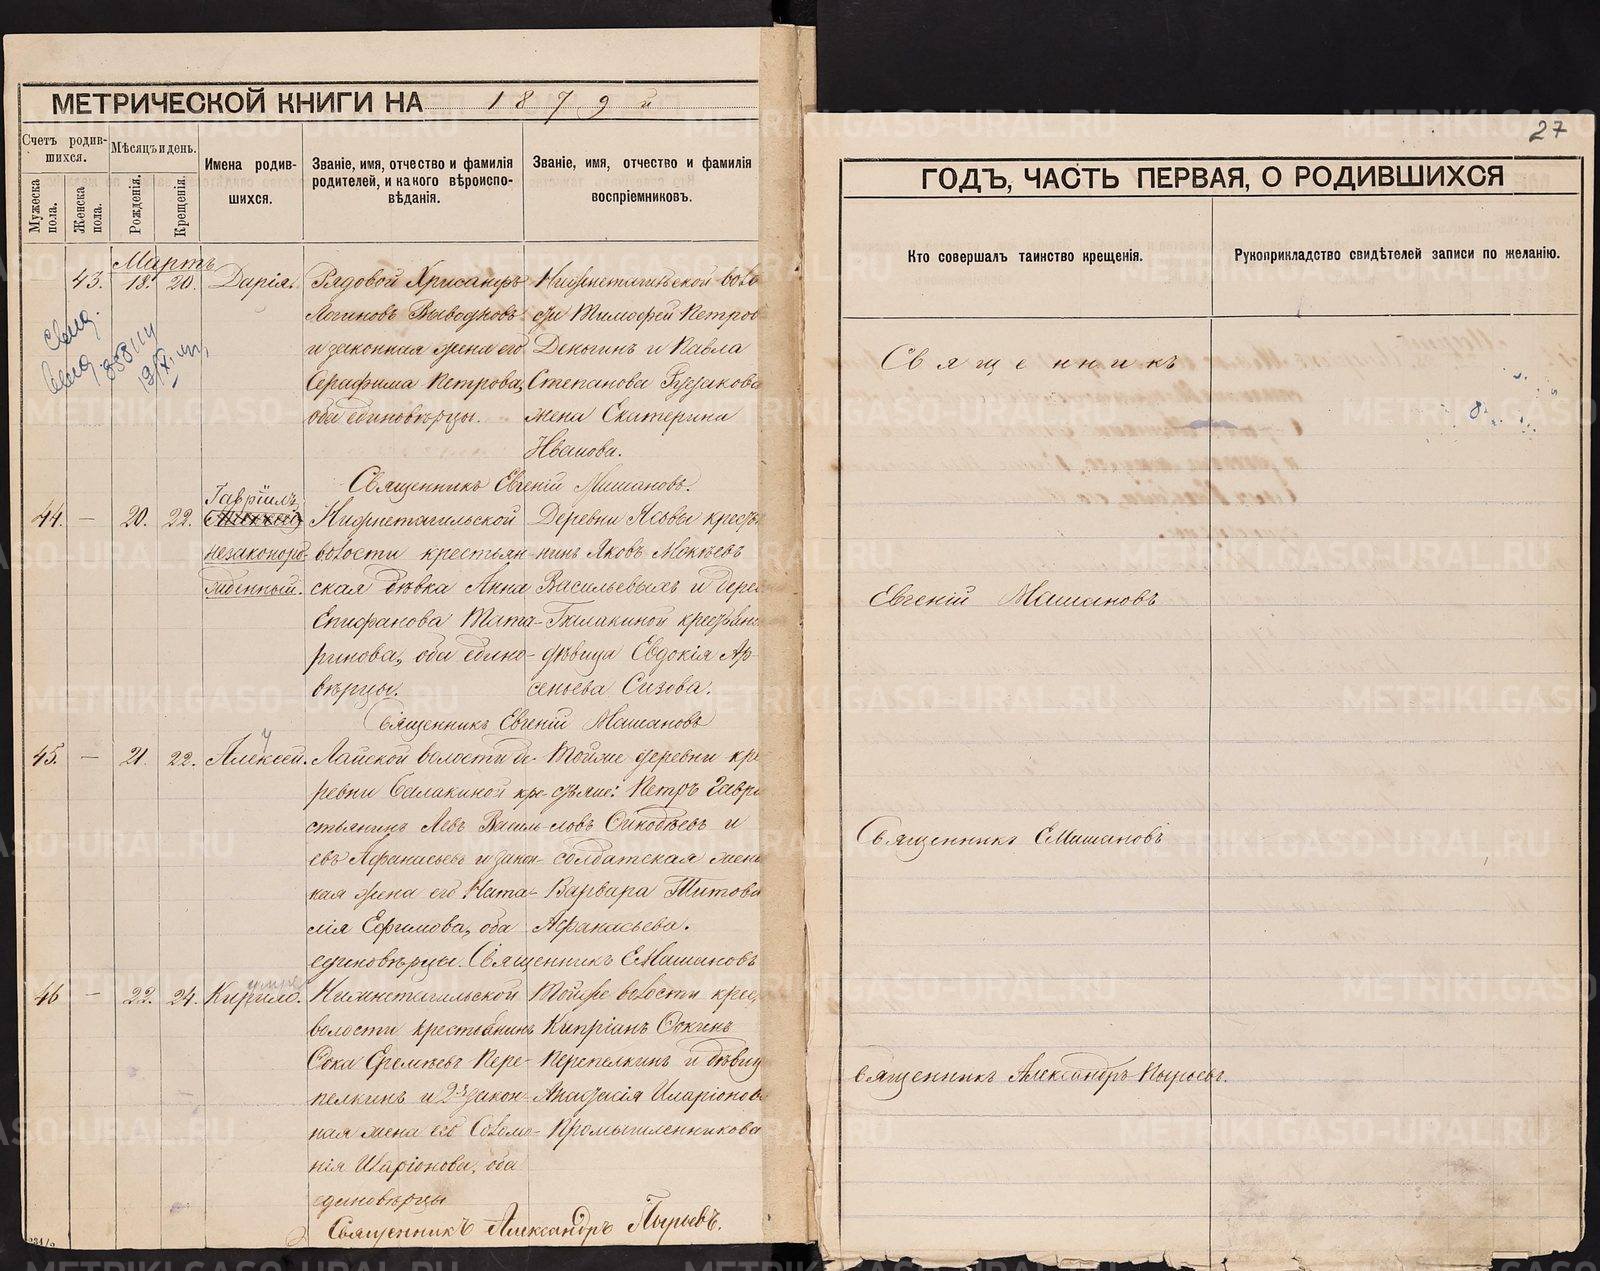 МЕТРИЧЕСКОЙ КНИГИ НА 1879 й
Счетъ родив-
шихся.
Мѣсяцъ и день.
Имена родив-
шихся.
Званіе, имя, отчество и фамилія
родителей, и какого вѣроиспо-
вѣданія.
Званіе, имя, отчество и фамилія
воспріемниковъ.
Мужеска
пола.
Женска
пола.
Рожденія.
Крещенія.
Мартъ
43. 18. 20. Дарія.
Рядовой Хрисанфъ
Логиновъ
и законная жена его
Серафима Петрова,
оба единовѣрцы.
Нижнетагильской воло
сти Тимофей Петров
Деньгинъ и Павла
Степанова
жена Екатерина
Иванова.
Священникъ Евгеній Машановъ.
44. — 20. 22. Гавріилъ
незаконоро
жденный.
Нижнетагильской
волости крестьян-
ская дѣвка Анна
Епифанова Мата-
ринова, оба едино-
вѣрцы.
Деревни
нинъ Яковъ Мокѣевъ
Васильевыхъ и дерев
Балакиной крестьянс
дѣвица Евдокія Ар-
сеньева Сизова.
Священникъ Евгеній Машановъ
45. — 21. 22. Алексей.
Лайской волости де-
ревни Балакиной кре-
стьянинъ Левъ Василь-
евъ Афанасьевъ и закон-
ная жена его Ната-
лія Ефимова, оба
единовѣрцы. Священникъ Е Машановъ
Тойже деревни кре
стьяне: Петръ Гаври
ловъ
солдатская жена
Варвара Титова
Афанасьева.
46 — 22. 24. Кирилъ.
умре
Нижнетагильской
волости крестьянинъ
Сока Еремѣевъ Пере-
пелкинъ и 2я закон-
ная жена его Соломо-
нія Иларіонова, оба
единовѣрцы
Тойже волости крес
Кипріанъ Оскинъ
Перепелкинъ и дѣвиц
Анафисія Иларіонов
Промышленникова
Священникъ Александръ Пырьевъ.
27
ГОДЪ, ЧАСТЬ ПЕРВАЯ, О РОДИВШИХСЯ
Кто совершалъ таинство крещенія.
Рукоприкладство свидѣтелей записи по желанію.
Священникъ
Евгеній Машановъ
Священникъ Е Машановъ
Священникъ Александръ Пырьевъ.
METRIKI.GASO-URAL.RU